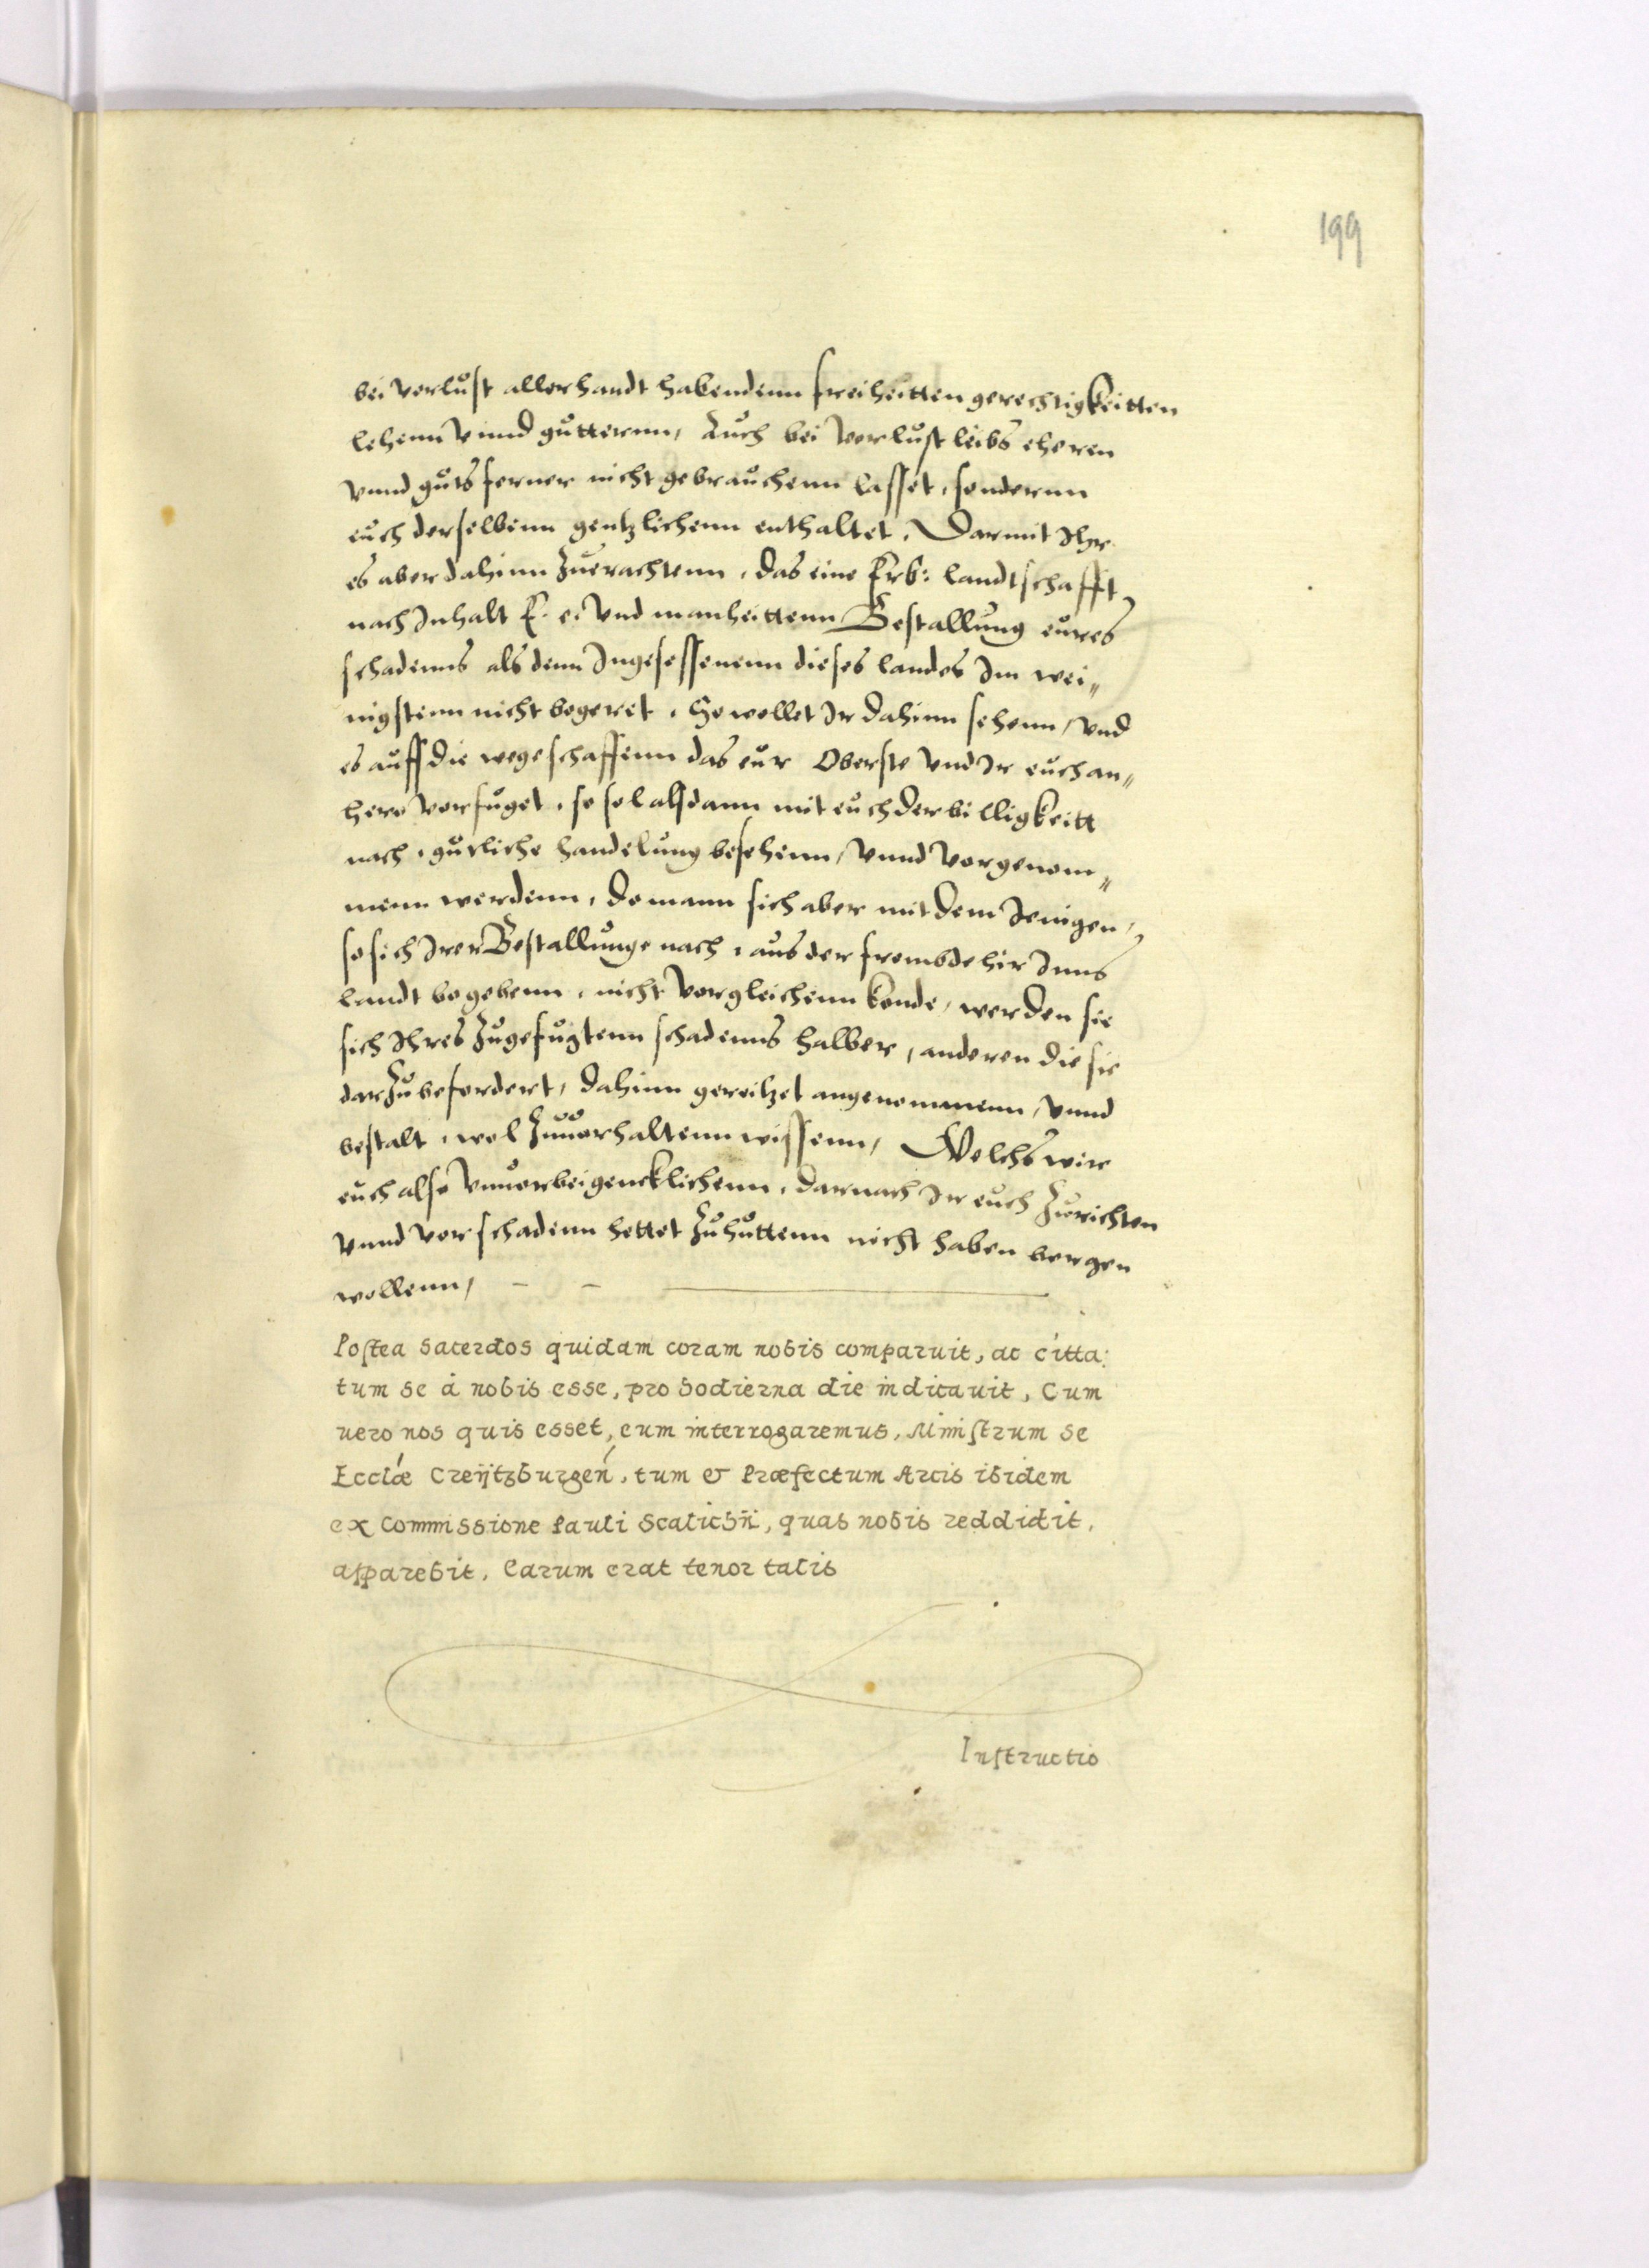 199
bei verlust allerhandt habendenn freiheitten gerechtigkeitten
lehenn vnnd gutternn, Auch bei verlust leibs eheren
vnnd guts ferner nicht gebrauchenn lasset, sondernn
euch derselbenn gentzlichenn enthaltet, Darmit Ihr
es aber dahinn zuerachtenn, das eine Erb: landtschafft
nach Inhalt E. e. vnd manheittenn Bestallung eures
schadenns als denn Ingesessenenn dieses landes Im wei„
nigstenn nicht begeret, So wollet Ir dahinn sehenn, vnd
es auff die wege schaffenn das eur Oberste vnd Ir euch an„
hero verfuget, so sol alsdann mit euch der billigkeitt
nach, gutliche handelung besehenn, vnnd vorgenom„
menn werdenn, Do mann sich aber mit dem Jenigen,
so sich Irer Bestallunge nach, aus der frembde hir Inns
landt begebenn, nicht vergleichenn konde, werden sie
sich Ihres zugefugtenn schadenns halber, anderen die sie
darzu befordert, dahinn gereitzet angenommenn, vnnd
bestalt, wol zuuorhaltenn wissenn, Welchs wir
euch also vnuorbeigencklichenn, darnach Ir euch zurichten
vnnd vor schadenn hettet zuhuttenn nicht haben bergen
wollenn,
Postea Sacerdos quidam coram nobis comparuit, ac citta:
tum se à nobis esse, pro hodierna die indicauit, Cum
uero nos quis esset, eum interrogaremus, Ministrum se
Ecclæ Creÿtzburgen, tum & Præfectum Arcis ibidem
ex Commissione Pauli Scalichÿ, quas nobis reddidit,
apparebit, Earum erat tenor talis
Instructio